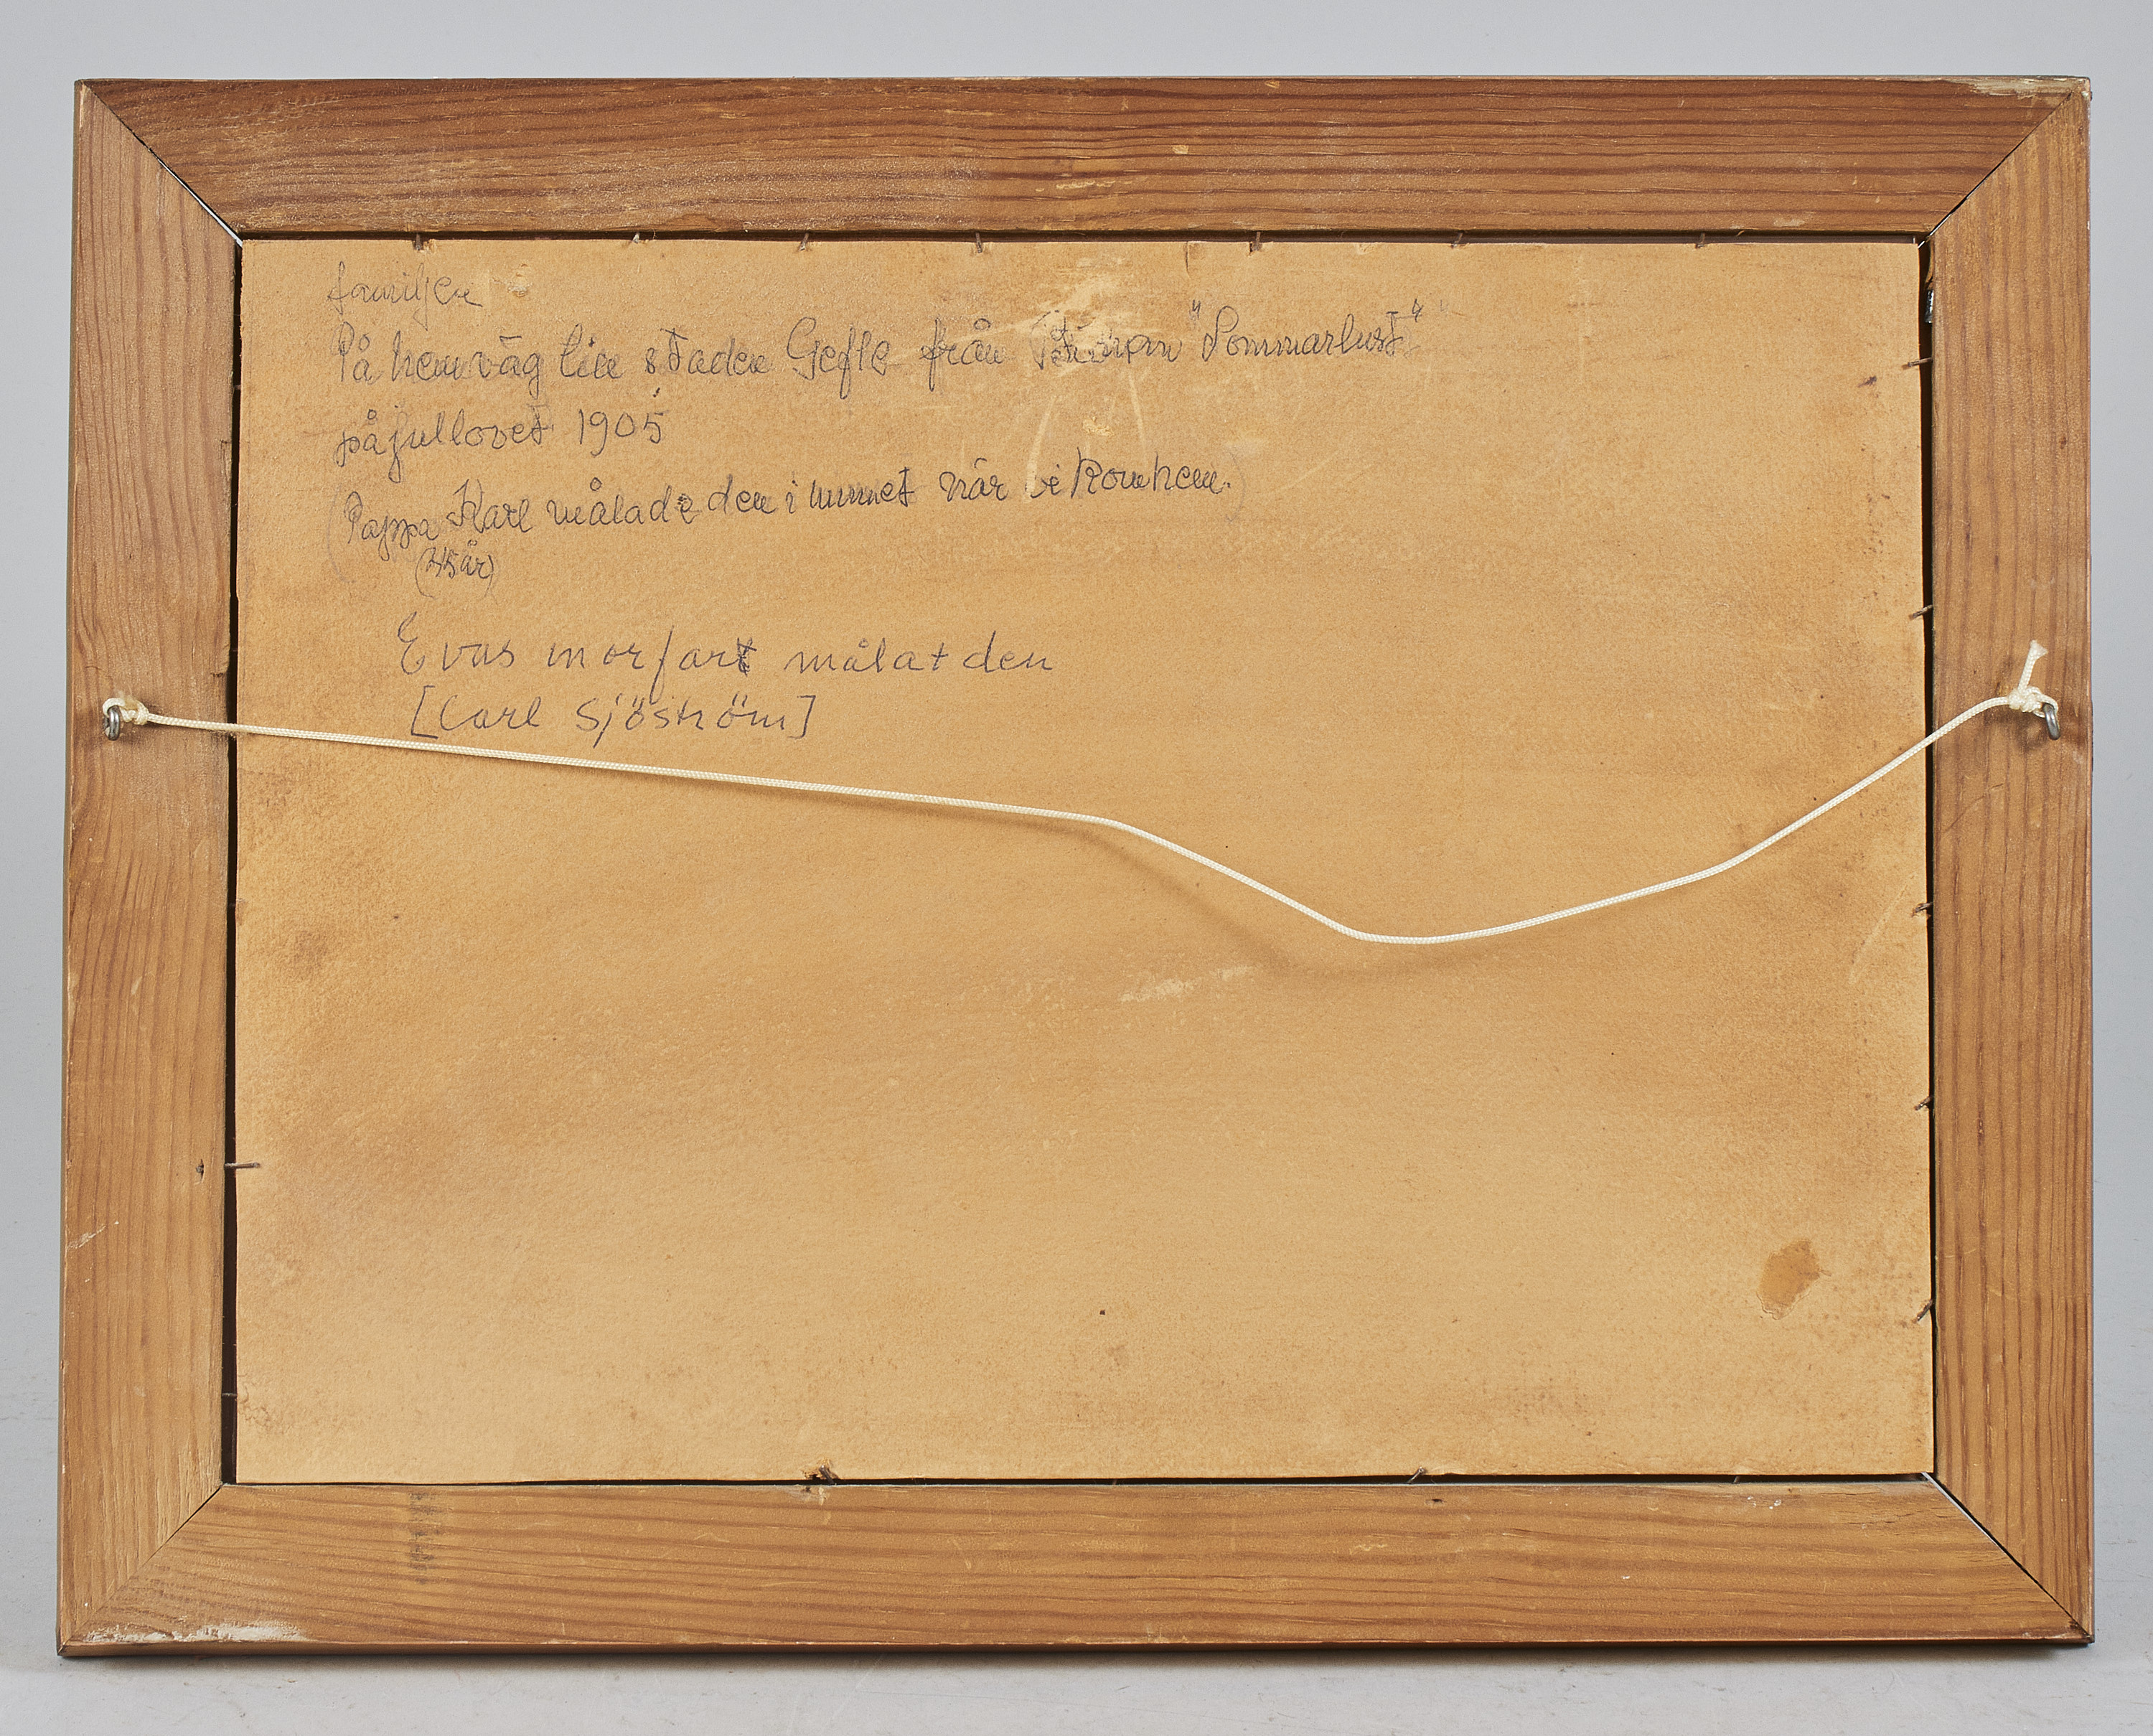 familjen
På hemväg till staden Gefle från "Sommarlust"
på jullovet 1905
(Pappa Karl målade den i minnet när vi kom hem.)
(45 år)
Evas morfart målat den
[Carl Sjöström]